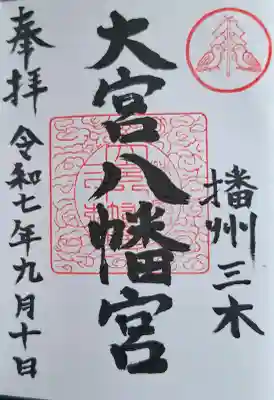 播州三木
大宮八幡宮
奉拝
令和七年九月十日